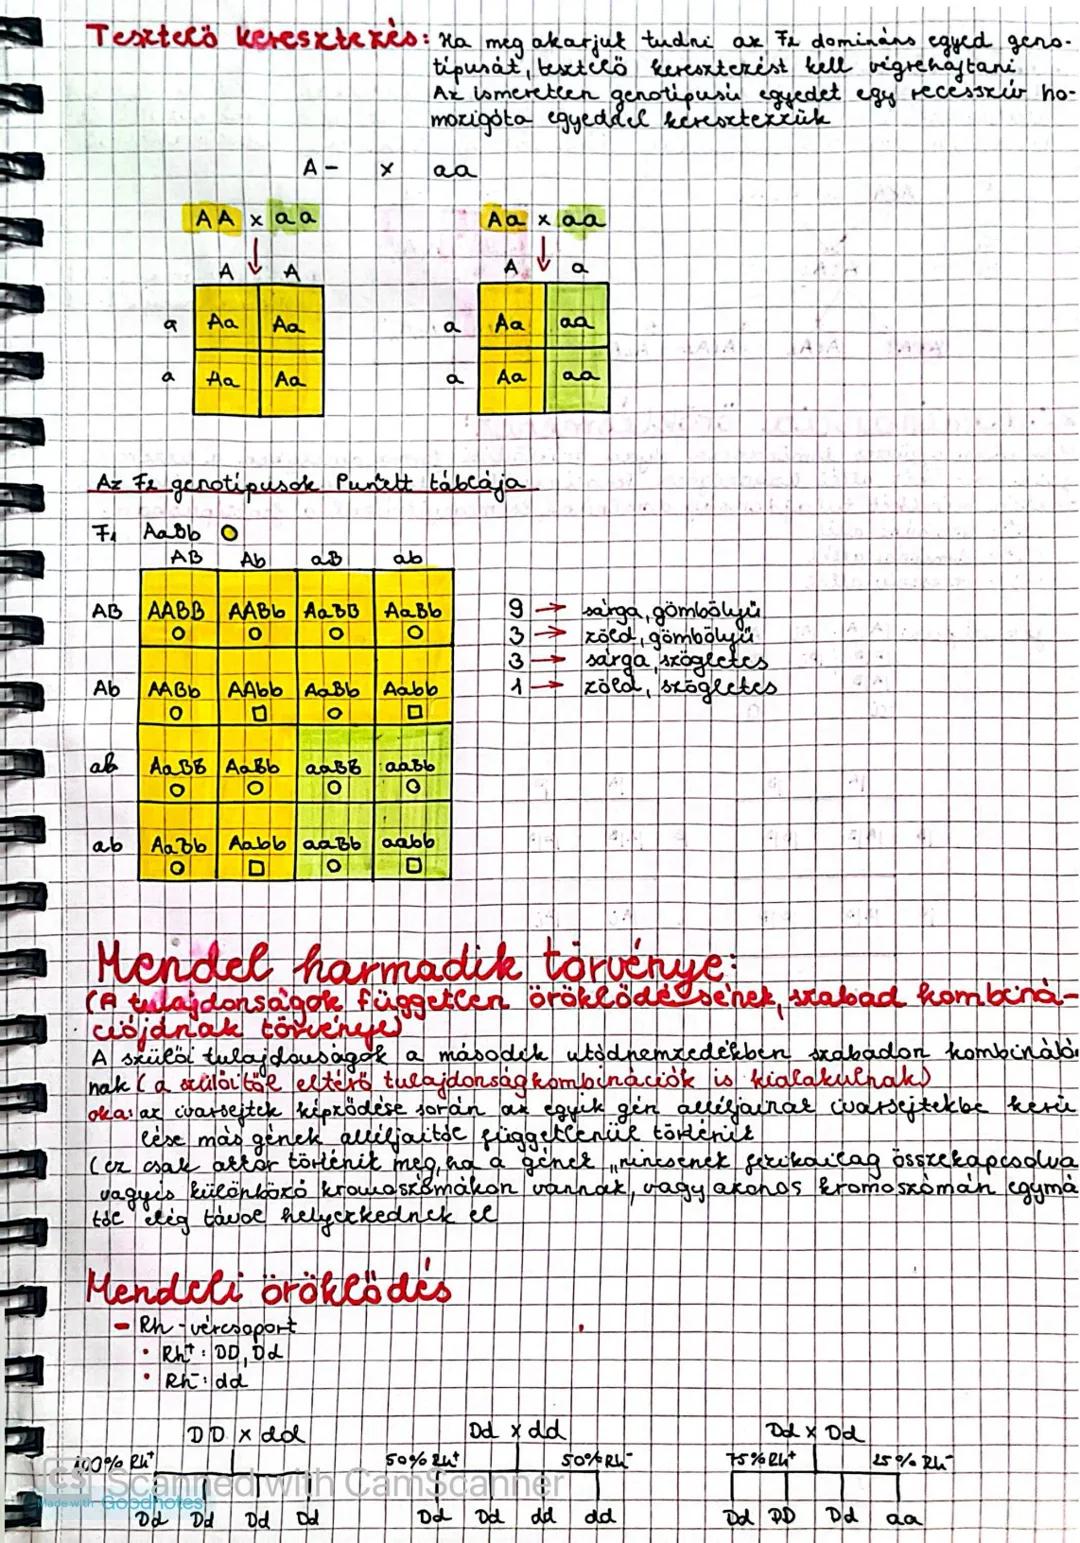 Tesztelő keresztezés: Ha meg akarjuk tudni az F2 domináns egyed geno-
típusát, tesztelő keresztezést kell végrehajtani.
Az ismeretlen genotípusú egyedet egy recesszív ho-
mozigóta egyeddel keresztezzük
A- x aa
AA x aa Aa x aa
A A A a
a Aa Aa a Aa aa
a Aa Aa a Aa aa
Az F2 genotípusok Punett táblája
F1 AaBb
AB Ab aB ab
AB AABB AABb AaBB AaBb 9 → sárga, gömbölyű
3 → zöld, gömbölyű
3 → sárga, szögletes
Ab AABb AAbb AaBb Aabb 1 → zöld, szögletes
aB AaBB AaBb aaBB aaBb
ab AaBb Aabb aaBb aabb
Mendel harmadik törvénye:
(A tulajdonságok független öröklődésének, szabad kombiná-
ciójának törvénye)
A szülői tulajdonságok a második utódnemzedékben szabadon kombinálód
nak (a szülőitől eltérő tulajdonságkombinációk is kialakulnak)
oka: az ivarsejtek képződése során az egyik gén alléljainak ivarsejtekbe kerü
lése más gének alléljaitól függetlenül történik
(ez csak akkor történik meg, ha a gének „nincsenek fizikailag összekapcsolva
vagyis különböző kromoszómákon vannak, vagy azonos kromoszómán egymá
tól elég távol helyezkednek el
Mendeli öröklődés
- Rh-vércsoport
• Rh+: DD, Dd
• Rh-: dd
DD x dd Dd x dd Dd x Dd
100% Rh+ 50% Rh+ 50% Rh- 75% Rh+ 25% Rh-
CS Scanned with CamScanner
Made with Goodnotes
Dd Dd Dd Dd Dd Dd dd dd Dd DD Dd aa